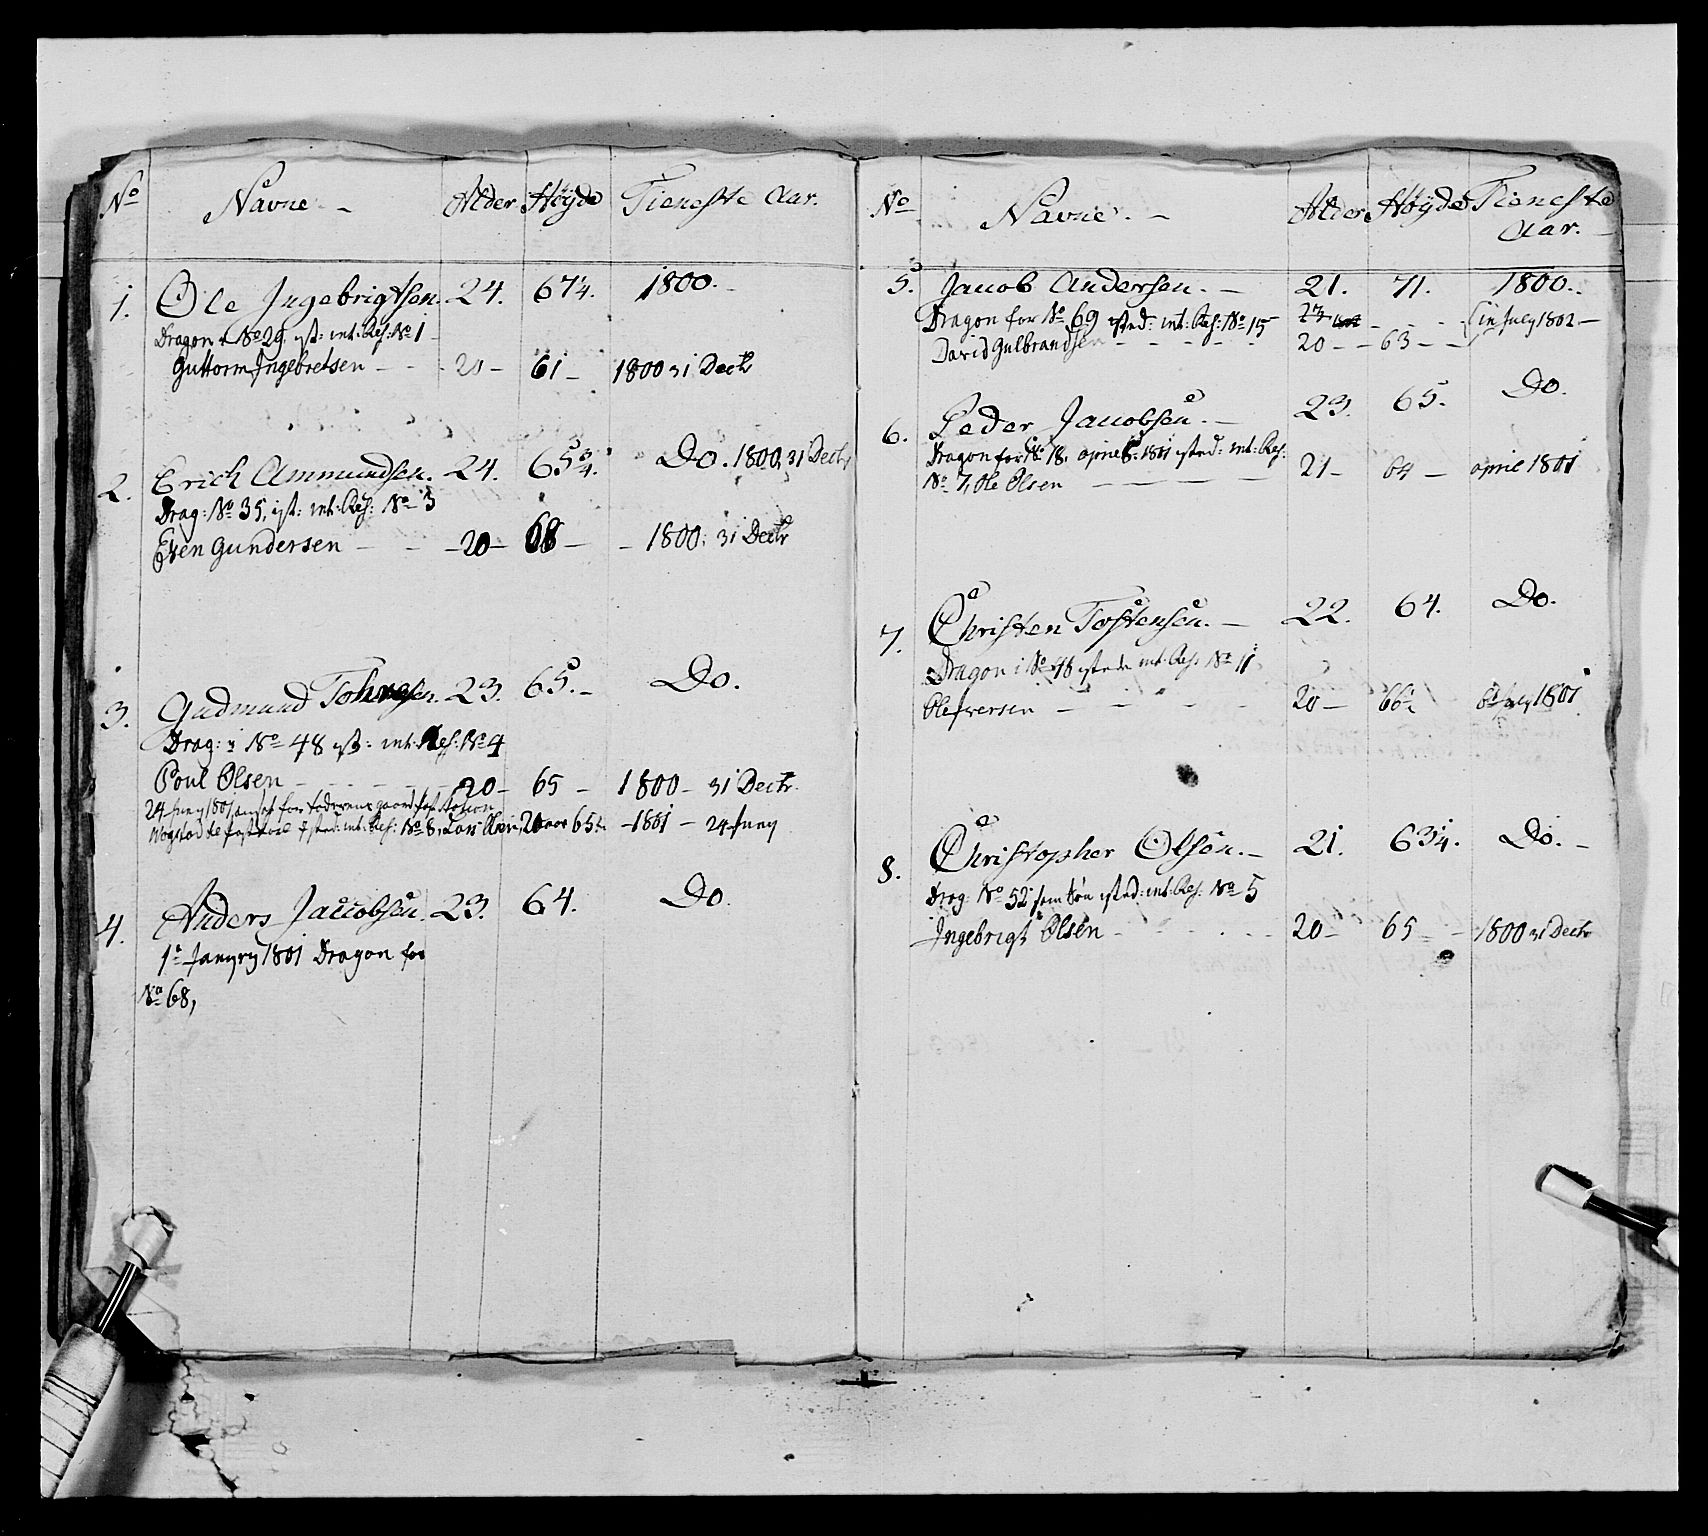 No Navne. Alder Høyde Tieneste Aar.
1. Ole Ingebrigtsen. 24. 67¼. 1800.
Dragon No 29. ist: int: Res: No 1
Guttorm Ingebretsen 20 61 1800 31 Decbr
2. Erich Ammundsen. 24. 65¾. Do. 1800, 31 Decbr
Drag: No 35, ist: int: Res: No 3
Even Gundersen 20 68 1800: 31 Decbr
3. Gudmund 23. 65. Do.
Drag: i No 48 ist: int: Res: No 4
Poul Olsen 20 65 1800 31 Decbr.
24 Juny 1801 for
int: Res: No 8, 20 aar 65 1801 24 Juny
4. Anders Jacobsen. 23. 64. Do.
1te Janury 1801 Dragon for
No 68,
No Navne. Alder Høyde Tieneste
Aar.
5. Jacob Andersen. 21. 71. 1800.
Dragon for No 69 isted: int: Res: No 15 July 1802
David Gulbrandsen 20 63
6. Peder Jacobsen. 23. 65. Do.
Dragon for No 18, april 1801 isted: int: Res:
No 7, Ole Olsen 21 64 april 1801
7. Christen Tostensen. 22. 64. Do.
Dragon i No 48 isted: int: Res. No 11
Ole Iversen 20 66 July 1801
8. Christopher Olsen. 21. 63¼. Do.
Drag: No 52 som Søn isted: int: Res: No 5
Ingebrigt Olsen 20 65 1800 31 Decbr